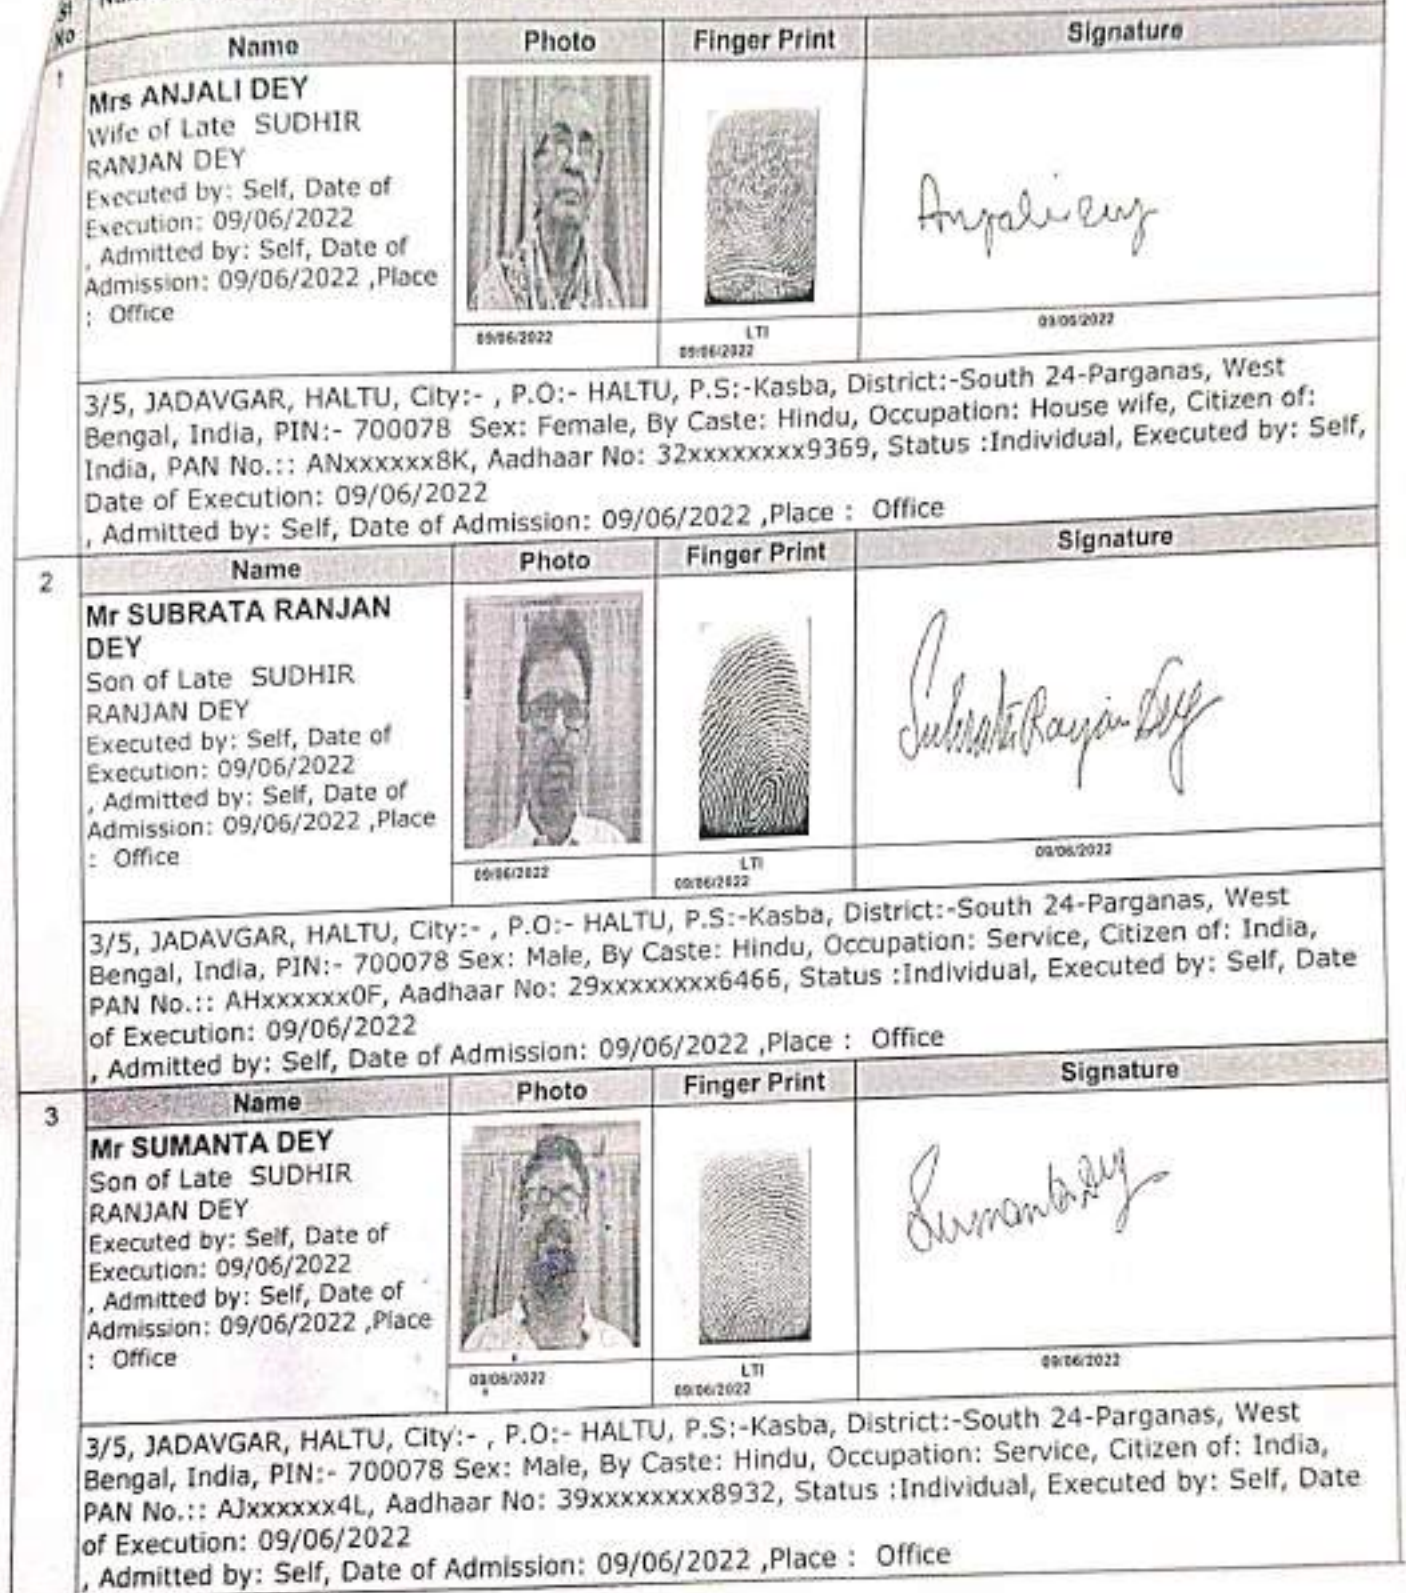 Sl
No
Name Photo Finger Print Signature
1
Mrs ANJALI DEY
Wife of Late SUDHIR
RANJAN DEY
Executed by: Self, Date of
Execution: 09/06/2022
, Admitted by: Self, Date of
Admission: 09/06/2022 ,Place
: Office
Anjali Dey
09/06/2022 LTI 09/06/2022
09/06/2022
3/5, JADAVGAR, HALTU, City:- , P.O:- HALTU, P.S:-Kasba, District:-South 24-Parganas, West
Bengal, India, PIN:- 700078 Sex: Female, By Caste: Hindu, Occupation: House wife, Citizen of:
India, PAN No.:: ANxxxxxx8K, Aadhaar No: 32xxxxxxxx9369, Status :Individual, Executed by: Self,
Date of Execution: 09/06/2022
, Admitted by: Self, Date of Admission: 09/06/2022 ,Place : Office
2
Name Photo Finger Print Signature
Mr SUBRATA RANJAN
DEY
Son of Late SUDHIR
RANJAN DEY
Executed by: Self, Date of
Execution: 09/06/2022
, Admitted by: Self, Date of
Admission: 09/06/2022 ,Place
: Office
Subrata Ranjan Dey
09/06/2022 LTI 09/06/2022
09/06/2022
3/5, JADAVGAR, HALTU, City:- , P.O:- HALTU, P.S:-Kasba, District:-South 24-Parganas, West
Bengal, India, PIN:- 700078 Sex: Male, By Caste: Hindu, Occupation: Service, Citizen of: India,
PAN No.:: AHxxxxxx0F, Aadhaar No: 29xxxxxxxx6466, Status :Individual, Executed by: Self, Date
of Execution: 09/06/2022
, Admitted by: Self, Date of Admission: 09/06/2022 ,Place : Office
3
Name Photo Finger Print Signature
Mr SUMANTA DEY
Son of Late SUDHIR
RANJAN DEY
Executed by: Self, Date of
Execution: 09/06/2022
, Admitted by: Self, Date of
Admission: 09/06/2022 ,Place
: Office
Sumanta Dey
09/06/2022 LTI 09/06/2022
09/06/2022
3/5, JADAVGAR, HALTU, City:- , P.O:- HALTU, P.S:-Kasba, District:-South 24-Parganas, West
Bengal, India, PIN:- 700078 Sex: Male, By Caste: Hindu, Occupation: Service, Citizen of: India,
PAN No.:: AJxxxxxx4L, Aadhaar No: 39xxxxxxxx8932, Status :Individual, Executed by: Self, Date
of Execution: 09/06/2022
, Admitted by: Self, Date of Admission: 09/06/2022 ,Place : Office